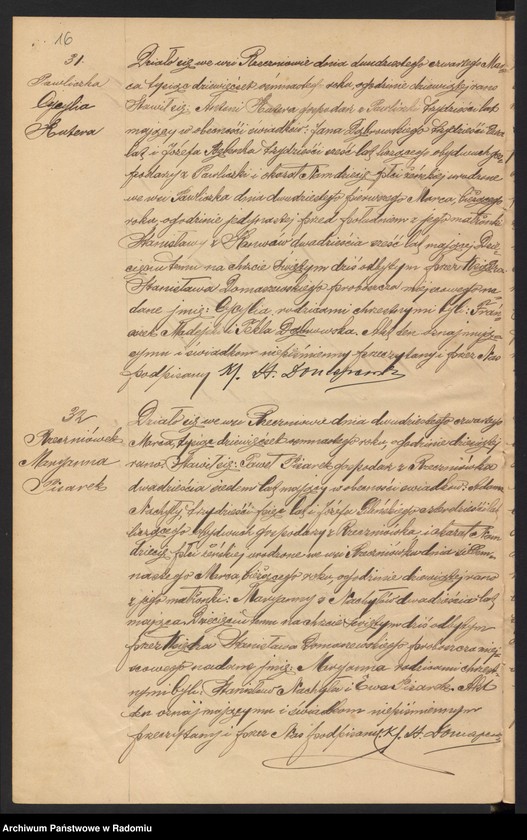 16
31.
Pawliczka
Cecylia
Kutera
Działo się we wsi Rzeczniowie dnia dwudziestego czwartego Mar-
ca tysiąc dziewięćset osiemnastego roku, o godzinie dziewiątej rano
Stawił się: Antoni Kutera gospodarz z Pawliczki trzydzieści lat
mający w obecności świadków: Jana Dąbrowskiego trzydzieści
lat i Józefa trzydzieści sześć lat liczącego obydwóch gos-
podarzy z Pawliczki i okazał Nam dziecię płci żeńskiej urodzone
we wsi Pawliczka dnia dwudziestego pierwszego Marca bieżącego
roku, o godzinie jedynastej przed południem z jego małżonki
Stanisławy z dwadzieścia sześć lat mającej. Dzie-
cięciu temu na chrzcie świętym dziś odbytym przez Księdza
Stanisława Domaszewskiego proboszcza miejscowego na-
dane imię: Cecylia, rodzicami chrzestnymi byli: Fran-
ciszek i Tekla Dąbrowska. Akt ten oznajmiją-
cymu i świadkom niepiśmiennym przeczytany i przez Nas
podpisany Kj. St. Domaszewski
32
Rzeczniówek
Maryanna
Pisarek
Działo się we wsi Rzeczniowie dnia dwudziestego czwartego
Marca, tysiąc dziewięćset osiemnastego roku, o godzinie dziesiątej
rano. Stawił się: Paweł Pisarek gospodarz z Rzeczniówka
dwadzieścia siedem lat mający w obecności świadków: Adama
Nachyły trzydzieści pięć lat i Józefa czterdzieści lat
liczącego obydwóch gospodarzy z Rzeczniówka, i okazał Nam
dziecię płci żeńskiej urodzone we wsi Rzeczniówku dnia siedem-
nastego Marca bieżącego roku, o godzinie dziewiątej rano
z jego małżonki: Maryanny z Nachyłów dwadzieścia lat
mającej. Dziecięciu temu na chrzcie świętym dziś odbytym
przez Księdza Stanisława Domaszewskiego proboszcza miej-
scowego nadane imię: Maryanna rodzicami chrzest-
nymi byli: Stanisław Nachyła i Ewa Pisarek. Akt
ten oznajmiającymu i świadkom niepiśmiennym
przeczytany i przez Nas podpisany. Kj. St. Domaszew-
Archiwum Państwowe w Radomiu